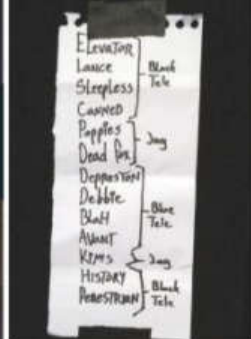 Elevator
Lance
Sleepless
Canned
Black
Tele
Poppies
Dead Fox
Jag
Depreston
Debbie
Blah
Avant
Blue
Tele
Kim's
Jag
History
Pedestrian
Black
Tele